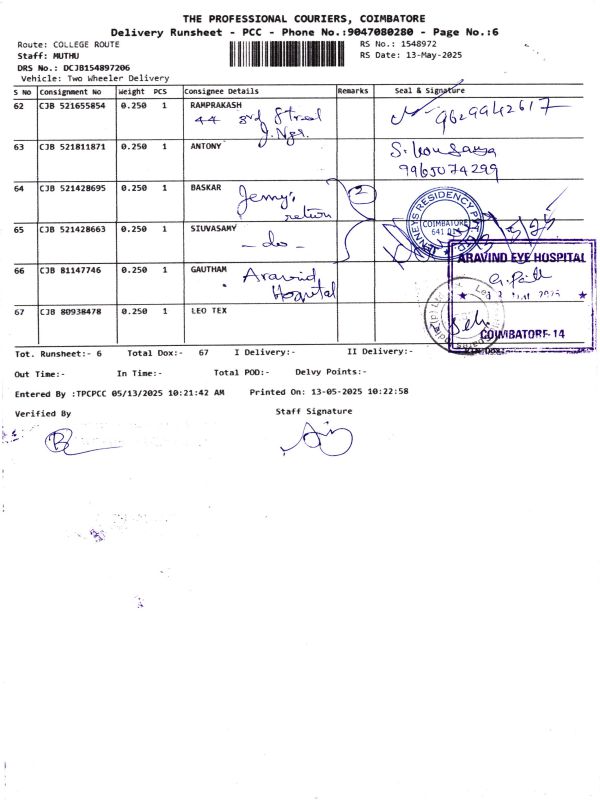 THE PROFESSIONAL COURIERS, COIMBATORE
Delivery Runsheet - PCC - Phone No.:9047080280 - Page No.:6
Route: COLLEGE ROUTE RS No.: 1548972
Staff: MUTHU RS Date: 13-May-2025
DRS No.: DCJB154897206
Vehicle: Two Wheeler Delivery
S No Consignment No Weight PCS Consignee Details Remarks Seal & Signature
62 CJB 521655854 0.250 1 RAMPRAKASH 9629942617
44 3rd Street
J.Ngr.
63 CJB 521811871 0.250 1 ANTONY
9965074299
64 CJB 521428695 0.250 1 BASKAR 2
Jenny's
return
JENNEYS RESIDENCY PVT
COIMBATORE
641 014
65 CJB 521428663 0.250 1 SIUVASAMY
- do -
ARAVIND EYE HOSPITAL
66 CJB 81147746 0.250 1 GAUTHAM Aravind
Hospital
67 CJB 80938478 0.250 1 LEO TEX
COIMBATORE-14
Tot. Runsheet:- 6 Total Dox:- 67 I Delivery:- II Delivery:-
Out Time:- In Time:- Total POD:- Delvy Points:-
Entered By :TPCPCC 05/13/2025 10:21:42 AM Printed On: 13-05-2025 10:22:58
Verified By Staff Signature